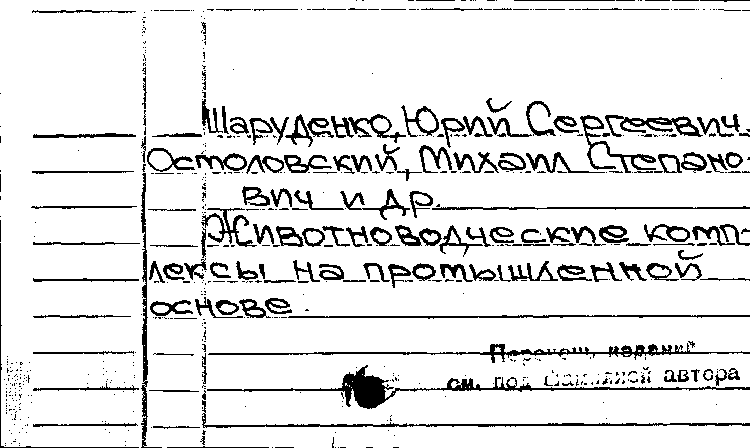 Шаруденко, Юрий Сергеевич,
Остоловский, Михаил Степано-
вич и др.
Животноводческие комп-
лексы на промышленной
основе.
Перечень изданий
см. под фамилией автора